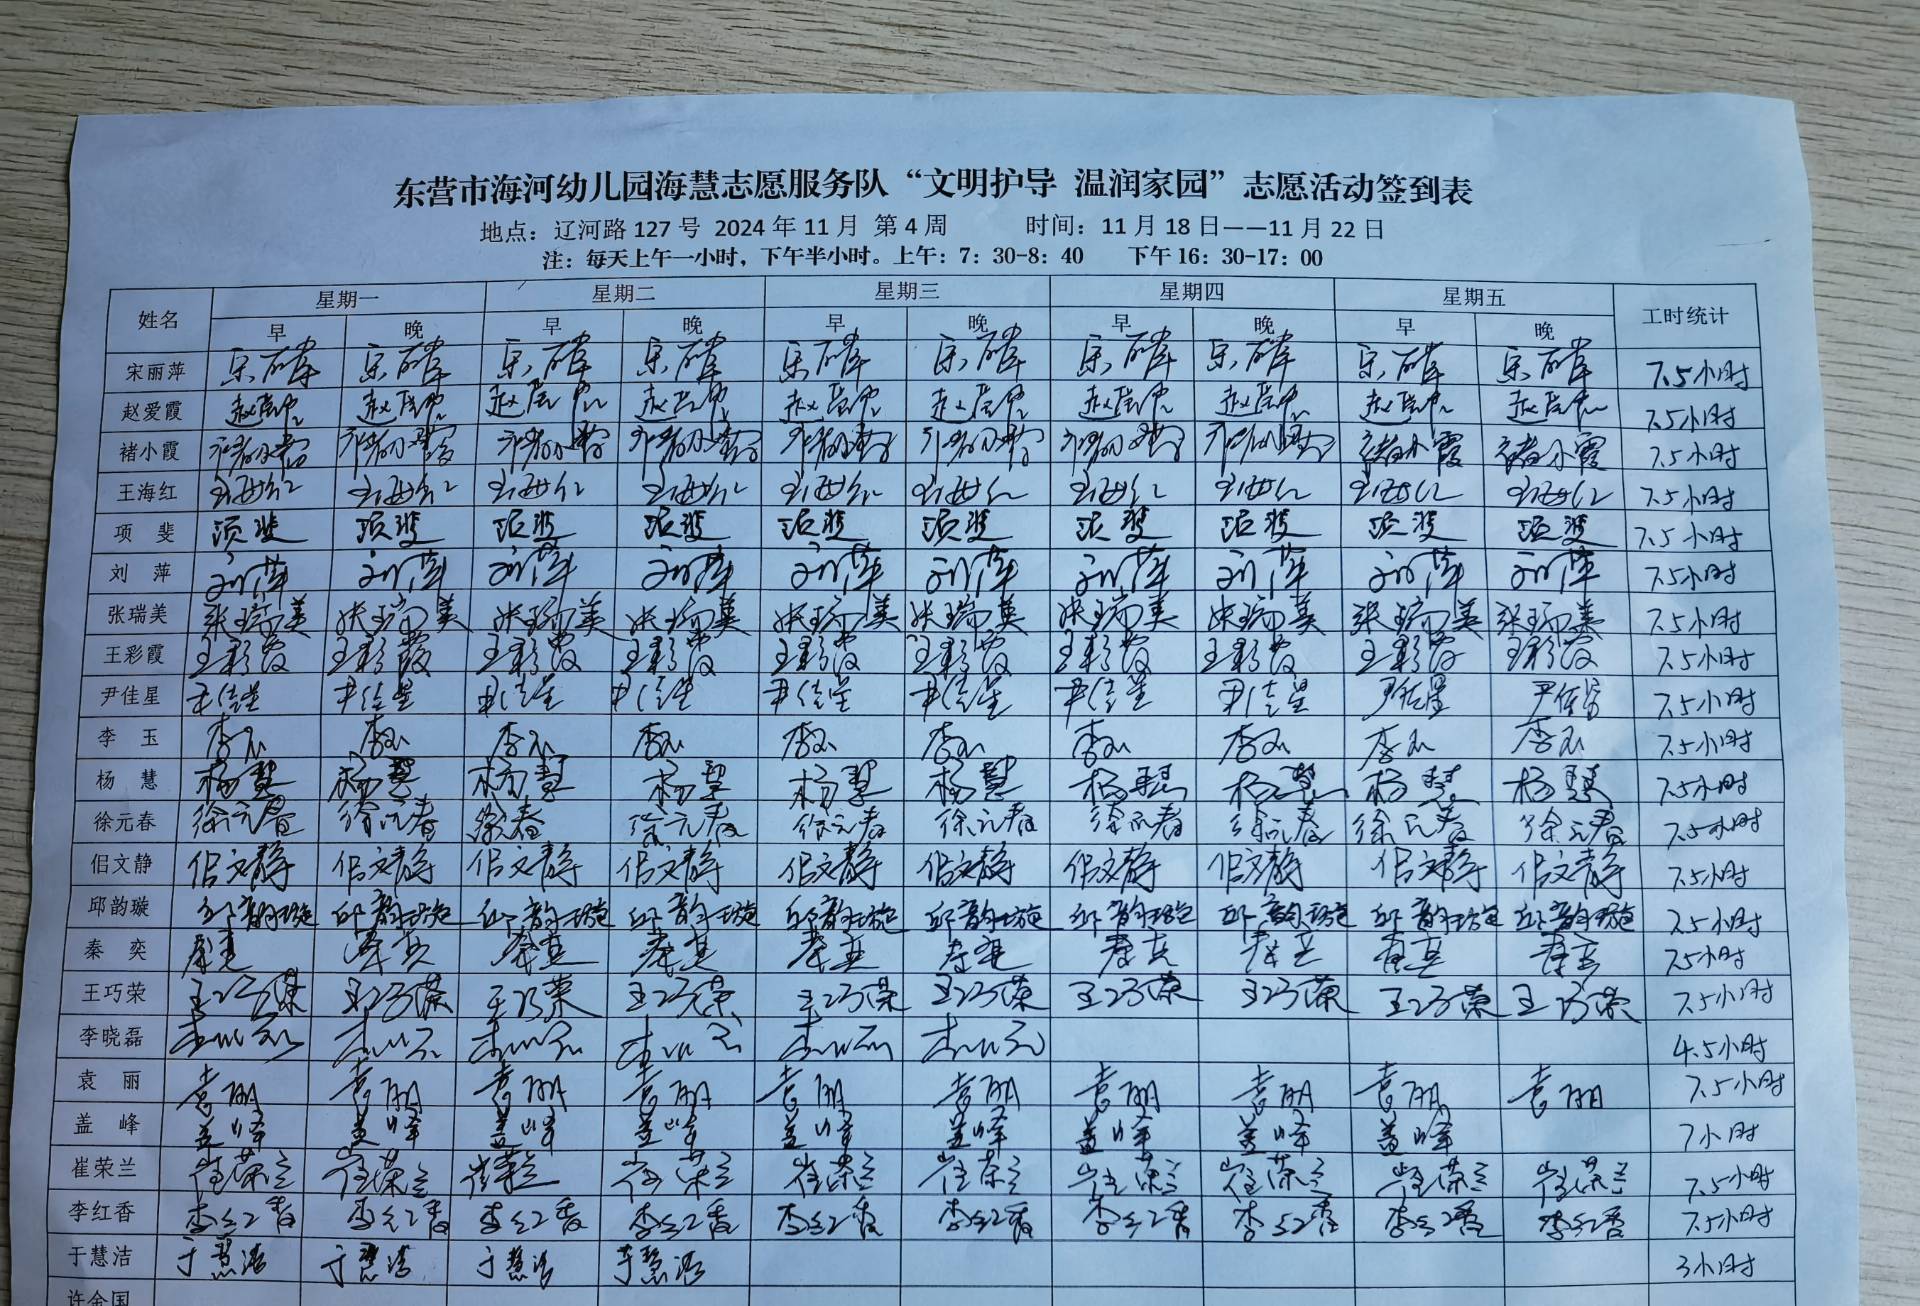 东营市海河幼儿园海慧志愿服务队“文明护导 温润家园”志愿活动签到表
地点：辽河路 127 号 2024 年 11 月 第 4 周 时间：11 月 18 日——11 月 22 日
注：每天上午一小时，下午半小时。上午：7：30-8：40 下午 16：30-17：00
姓名 星期一 星期二 星期三 星期四 星期五 工时统计
早 晚 早 晚 早 晚 早 晚 早 晚
宋丽萍 7.5小时
赵爱霞 7.5小时
褚小霞 褚小霞 褚小霞 7.5小时
王海红 7.5小时
项 斐 项斐 项斐 项斐 项斐 项斐 项斐 项斐 项斐 项斐 项斐 7.5小时
刘 萍 刘萍 刘萍 刘萍 刘萍 刘萍 刘萍 刘萍 刘萍 刘萍 刘萍 7.5小时
张瑞美 张瑞美 张瑞美 张瑞美 张瑞美 张瑞美 张瑞美 张瑞美 张瑞美 张瑞美 张瑞美 7.5小时
王彩霞 王彩霞 王彩霞 王彩霞 王彩霞 王彩霞 王彩霞 王彩霞 王彩霞 王彩霞 王彩霞 7.5小时
尹佳星 尹佳星 尹佳星 尹佳星 尹佳星 尹佳星 尹佳星 尹佳星 尹佳星 尹佳星 尹佳星 7.5小时
李 玉 李玉 李玉 李玉 李玉 李玉 李玉 李玉 李玉 李玉 李玉 7.5小时
杨 慧 杨慧 杨慧 杨慧 杨慧 杨慧 杨慧 杨慧 杨慧 杨慧 杨慧 7.5小时
徐元春 徐元春 徐元春 徐元春 徐元春 徐元春 徐元春 徐元春 徐元春 徐元春 徐元春 7.5小时
佀文静 佀文静 佀文静 佀文静 佀文静 佀文静 佀文静 佀文静 佀文静 佀文静 佀文静 7.5小时
邱韵璇 邱韵璇 邱韵璇 邱韵璇 邱韵璇 邱韵璇 邱韵璇 邱韵璇 邱韵璇 邱韵璇 邱韵璇 7.5小时
秦 奕 秦奕 秦奕 秦奕 秦奕 秦奕 秦奕 秦奕 秦奕 秦奕 秦奕 7.5小时
王巧荣 王巧荣 王巧荣 王巧荣 王巧荣 王巧荣 王巧荣 王巧荣 王巧荣 王巧荣 王巧荣 7.5小时
李晓磊 4.5小时
袁 丽 袁丽 袁丽 袁丽 袁丽 袁丽 袁丽 袁丽 袁丽 袁丽 袁丽 7.5小时
盖 峰 盖峰 盖峰 盖峰 盖峰 盖峰 盖峰 盖峰 盖峰 盖峰 7小时
崔荣兰 崔荣兰 崔荣兰 崔荣兰 崔荣兰 崔荣兰 崔荣兰 崔荣兰 崔荣兰 崔荣兰 崔荣兰 7.5小时
李红香 李红香 李红香 李红香 李红香 李红香 李红香 李红香 李红香 李红香 李红香 7.5小时
于慧洁 于慧洁 于慧洁 于慧洁 于慧洁 3小时
许金国